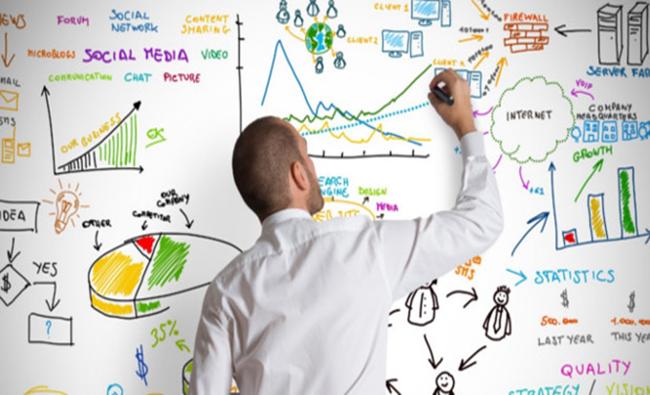 NEWS
FORUM
SOCIAL
NETWORK
CONTENT
SHARING
MICROBLOGS
SOCIAL MEDIA
VIDEO
COMMUNICATION
CHAT
PICTURE
MAIL
SMS
OUR BUSINESS
OK
CLIENT 1
CLIENT 2
CLIENT X
FIREWALL
SERVER FARM
INTERNET
VOIP
COMPANY
HEADQUARTERS
GROWTH
SEARCH
ENGINE
DESIGN
MEDIA
WEB SITE
IDEA
YES
$
?
OTHER
COMPETITOR
OUR
COMPANY
35%
$
SMS
STATISTICS
$ $
LAST YEAR
THIS YEA
QUALITY
STRATEGY / VISION